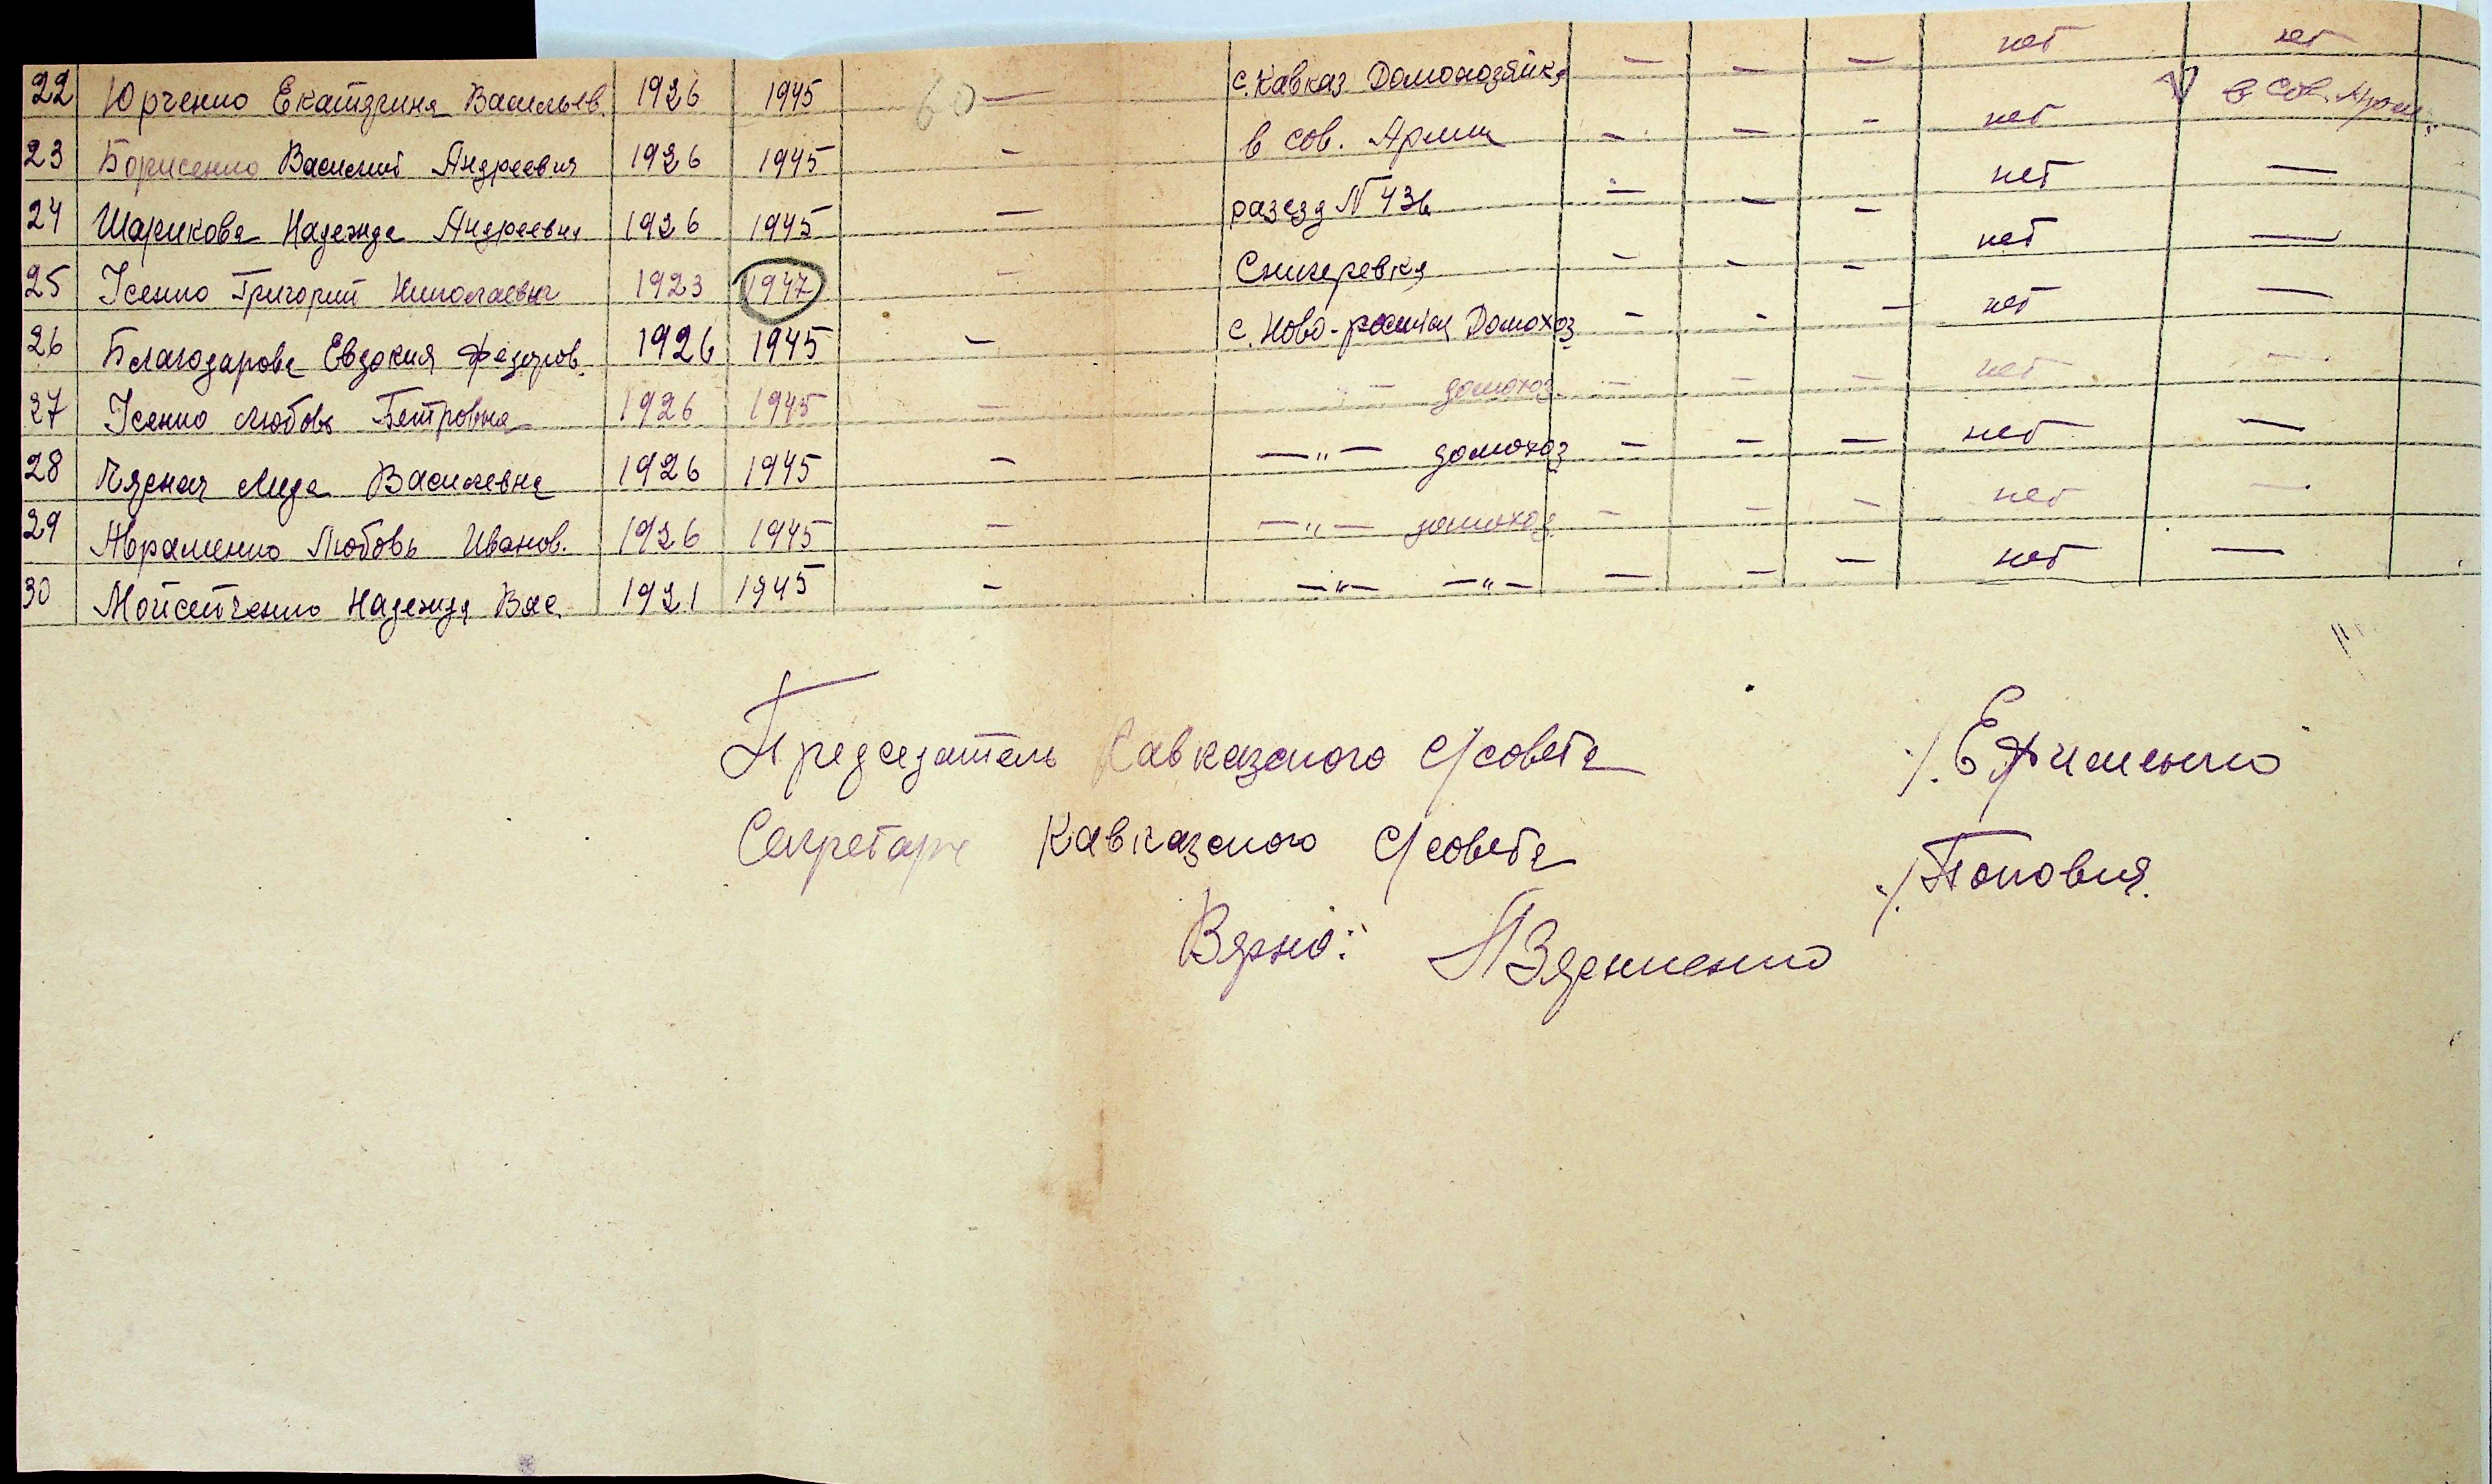 22 Юрченко Екатерина Васильев. 1926 1945 60 — с. Кавказ Домохозяйка — — — нет нет
23 Борисенко Василий Андреевич 1926 1945 — в сов. Армии — — — нет V в Сов. Арм.
24 Шарикова Надежда Андреевна 1926 1945 — разезд N 43б — — — нет —
25 Усенко Григорий Николаевич 1923 1947 — Снигеревка — — — нет —
26 Благодарова Евдокия Федоров. 1926 1945 — с. Ново- Домохоз — — — нет —
27 Усенко Любовь Петровна 1926 1945 — —"— домохоз. — — — нет —
28 Лида Василевна 1926 1945 — —"— домохоз — — — нет —
29 Авраменко Любовь Иванов. 1926 1945 — —"— домохоз. — — — нет —
30 Мойсейченко Надежда Вас. 1921 1945 — —"— —"— — — — нет —
Председатель Кавказского с/совета /. Ефименко
Секретарь Кавказского с/совета ./. Попович.
Верно: